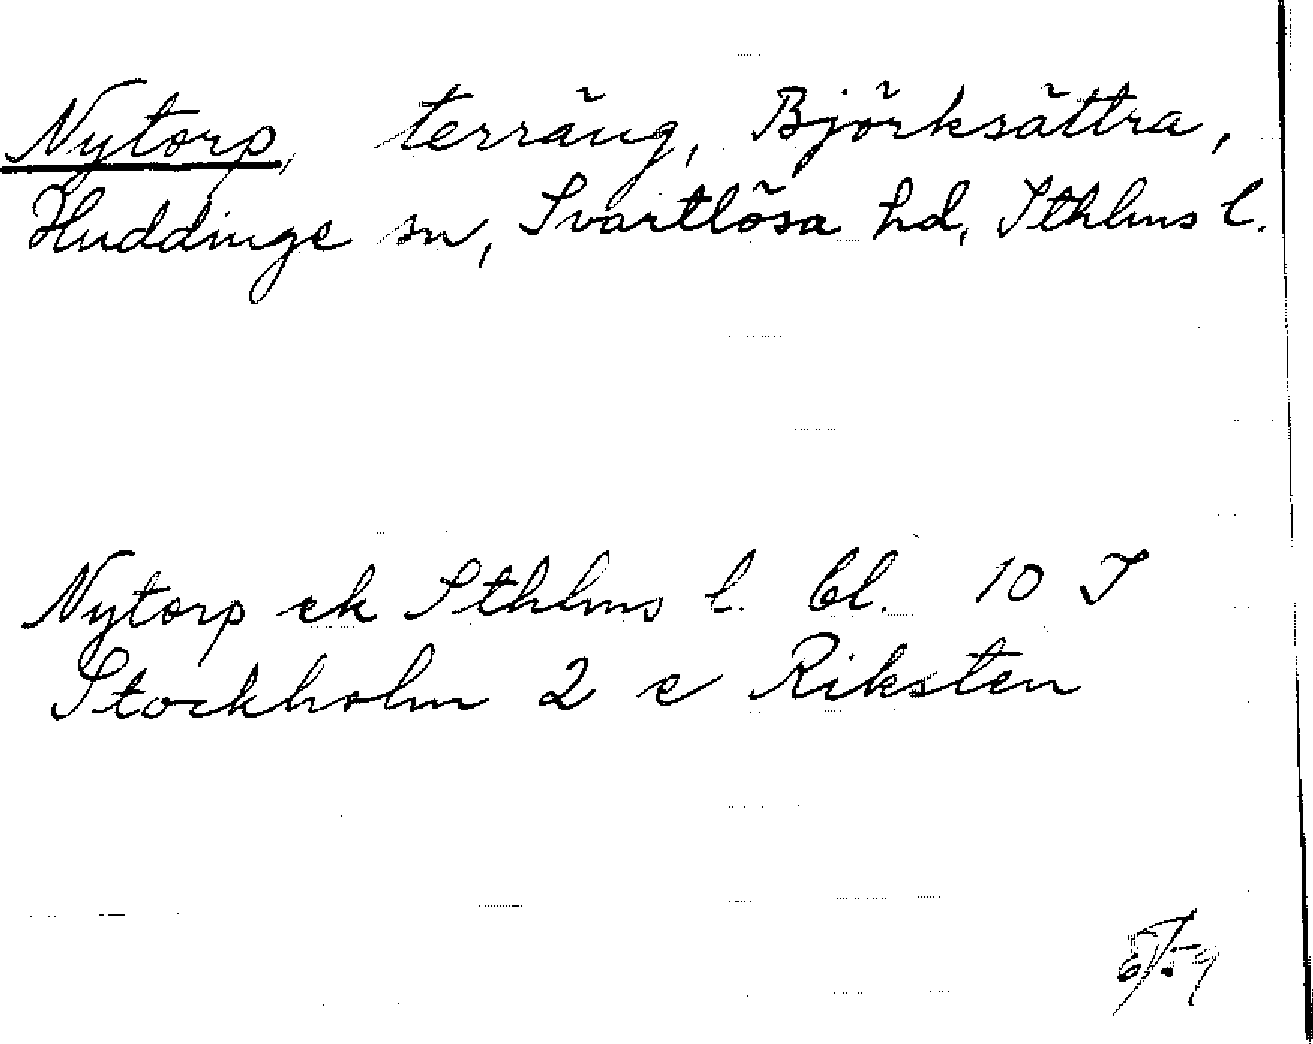 Nytorp, terräng, Björksättra,
Huddinge sn, Svartlösa hd, Sthlms l.
Nytorp ek Sthlms l. bl. 10 I
Stockholm 2 c Riksten